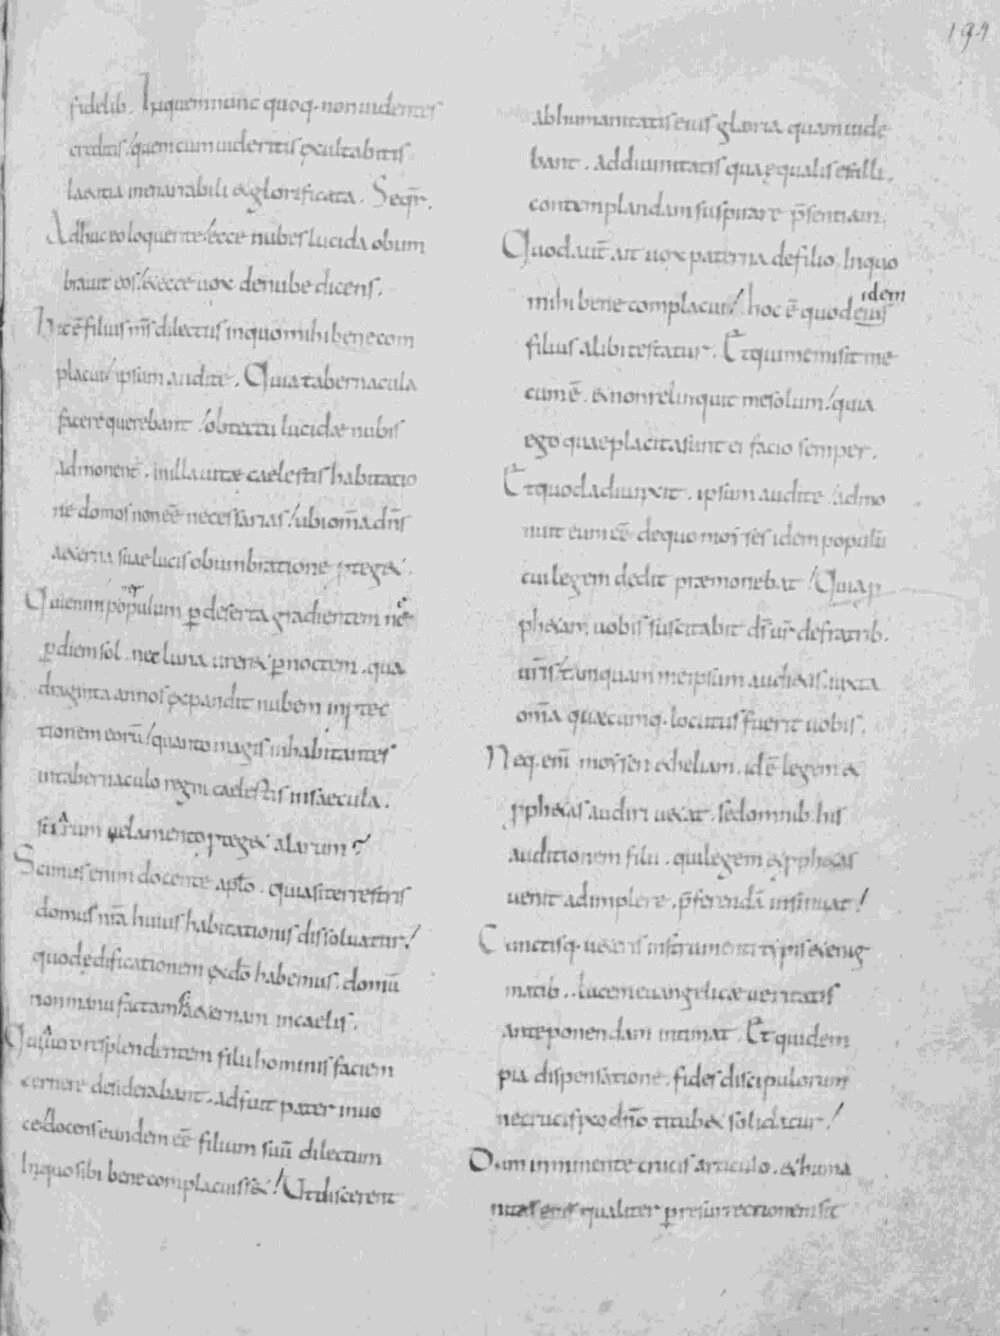 194
fidelib. Inquem nunc quoq. non uidentes
creditis / quem cum uideritis exultabitis
laetitia inenarrabili & glorificata. Seqr̄.
Adhuc eo loquente / ecce nubes lucida obum
brauit eos / & ecce uox de nube dicens.
Hic ē filius m̄s dilectus in quo mihi bene com
placui / ipsum audite. Quia tabernacula
facere querebant / obtectu lucidae nubis
admonent̄. in illa uitae caelestis habitatio
ne domos non eē necessarias / ubi om̄a dn̄s
aeterna suae lucis obumbratione pteg&.
Qui enim populum p deserta gradientem ne
p diem sol. nec luna urer& p noctem. qua
draginta annos expandit nubem in ptec
tionem eorū / quanto magis inhabitantes
in tabernaculo regni caelestis in saecula.
uelamento pteg& alarum?
Scimus enim docente aplo. quia si terrestris
domus nr̄a huius habitationis dissoluatur /
quod ędificationem ex dō habemus. domū
non manu factam sed aeternam in caelis.
Qui uero resplendentem filii hominis faciem
cernere desiderabant. adfuit pater in uo
ce / docens eundem eē filium suū dilectum
In quo sibi bene complacuiss& / Ut discerent
ab humanitatis eius gloria quam uide
bant. ad diuinitatis quae qualis est illi.
contemplandam suspirare p̄sentiam.
Quod aut̄ ait uox paterna de filio. In quo
idem
mihi bene complacui / hoc ē quod eius
filius alibi testatur. Et qui me misit me
cum ē. & non relinquit me solum / quia
ego quae placita sunt ei facio semper.
Et quod adiunxit. ipsum audite / admo
nuit eum eē de quo moyses idem populū
cui legem dedit praemonebat / Quia p
ph&am uobis suscitabit ds̄ ur̄ de fratrib.
ur̄is / tanquam me ipsum audi&is. iuxta
om̄a quaecumq. locutus fuerit uobis.
Neq. eni moysen & heliam. id ē legem &
pph&as audiri u&at. sed omnib. his
auditionem filii. qui legem & pph&as
uenit adimplere. p̄ferendā insinuat /
Cunctisq. u&eris instrumenti typis & enig
matib.. lucem euangelicae ueritatis
anteponendam intimat. Et quidem
pia dispensatione. fides discipulorum
ne crucifixo dn̄o titub& solidatur /
Dum inminente crucis articulo. & huma
nitas eius qualiter p resurrectionem sit